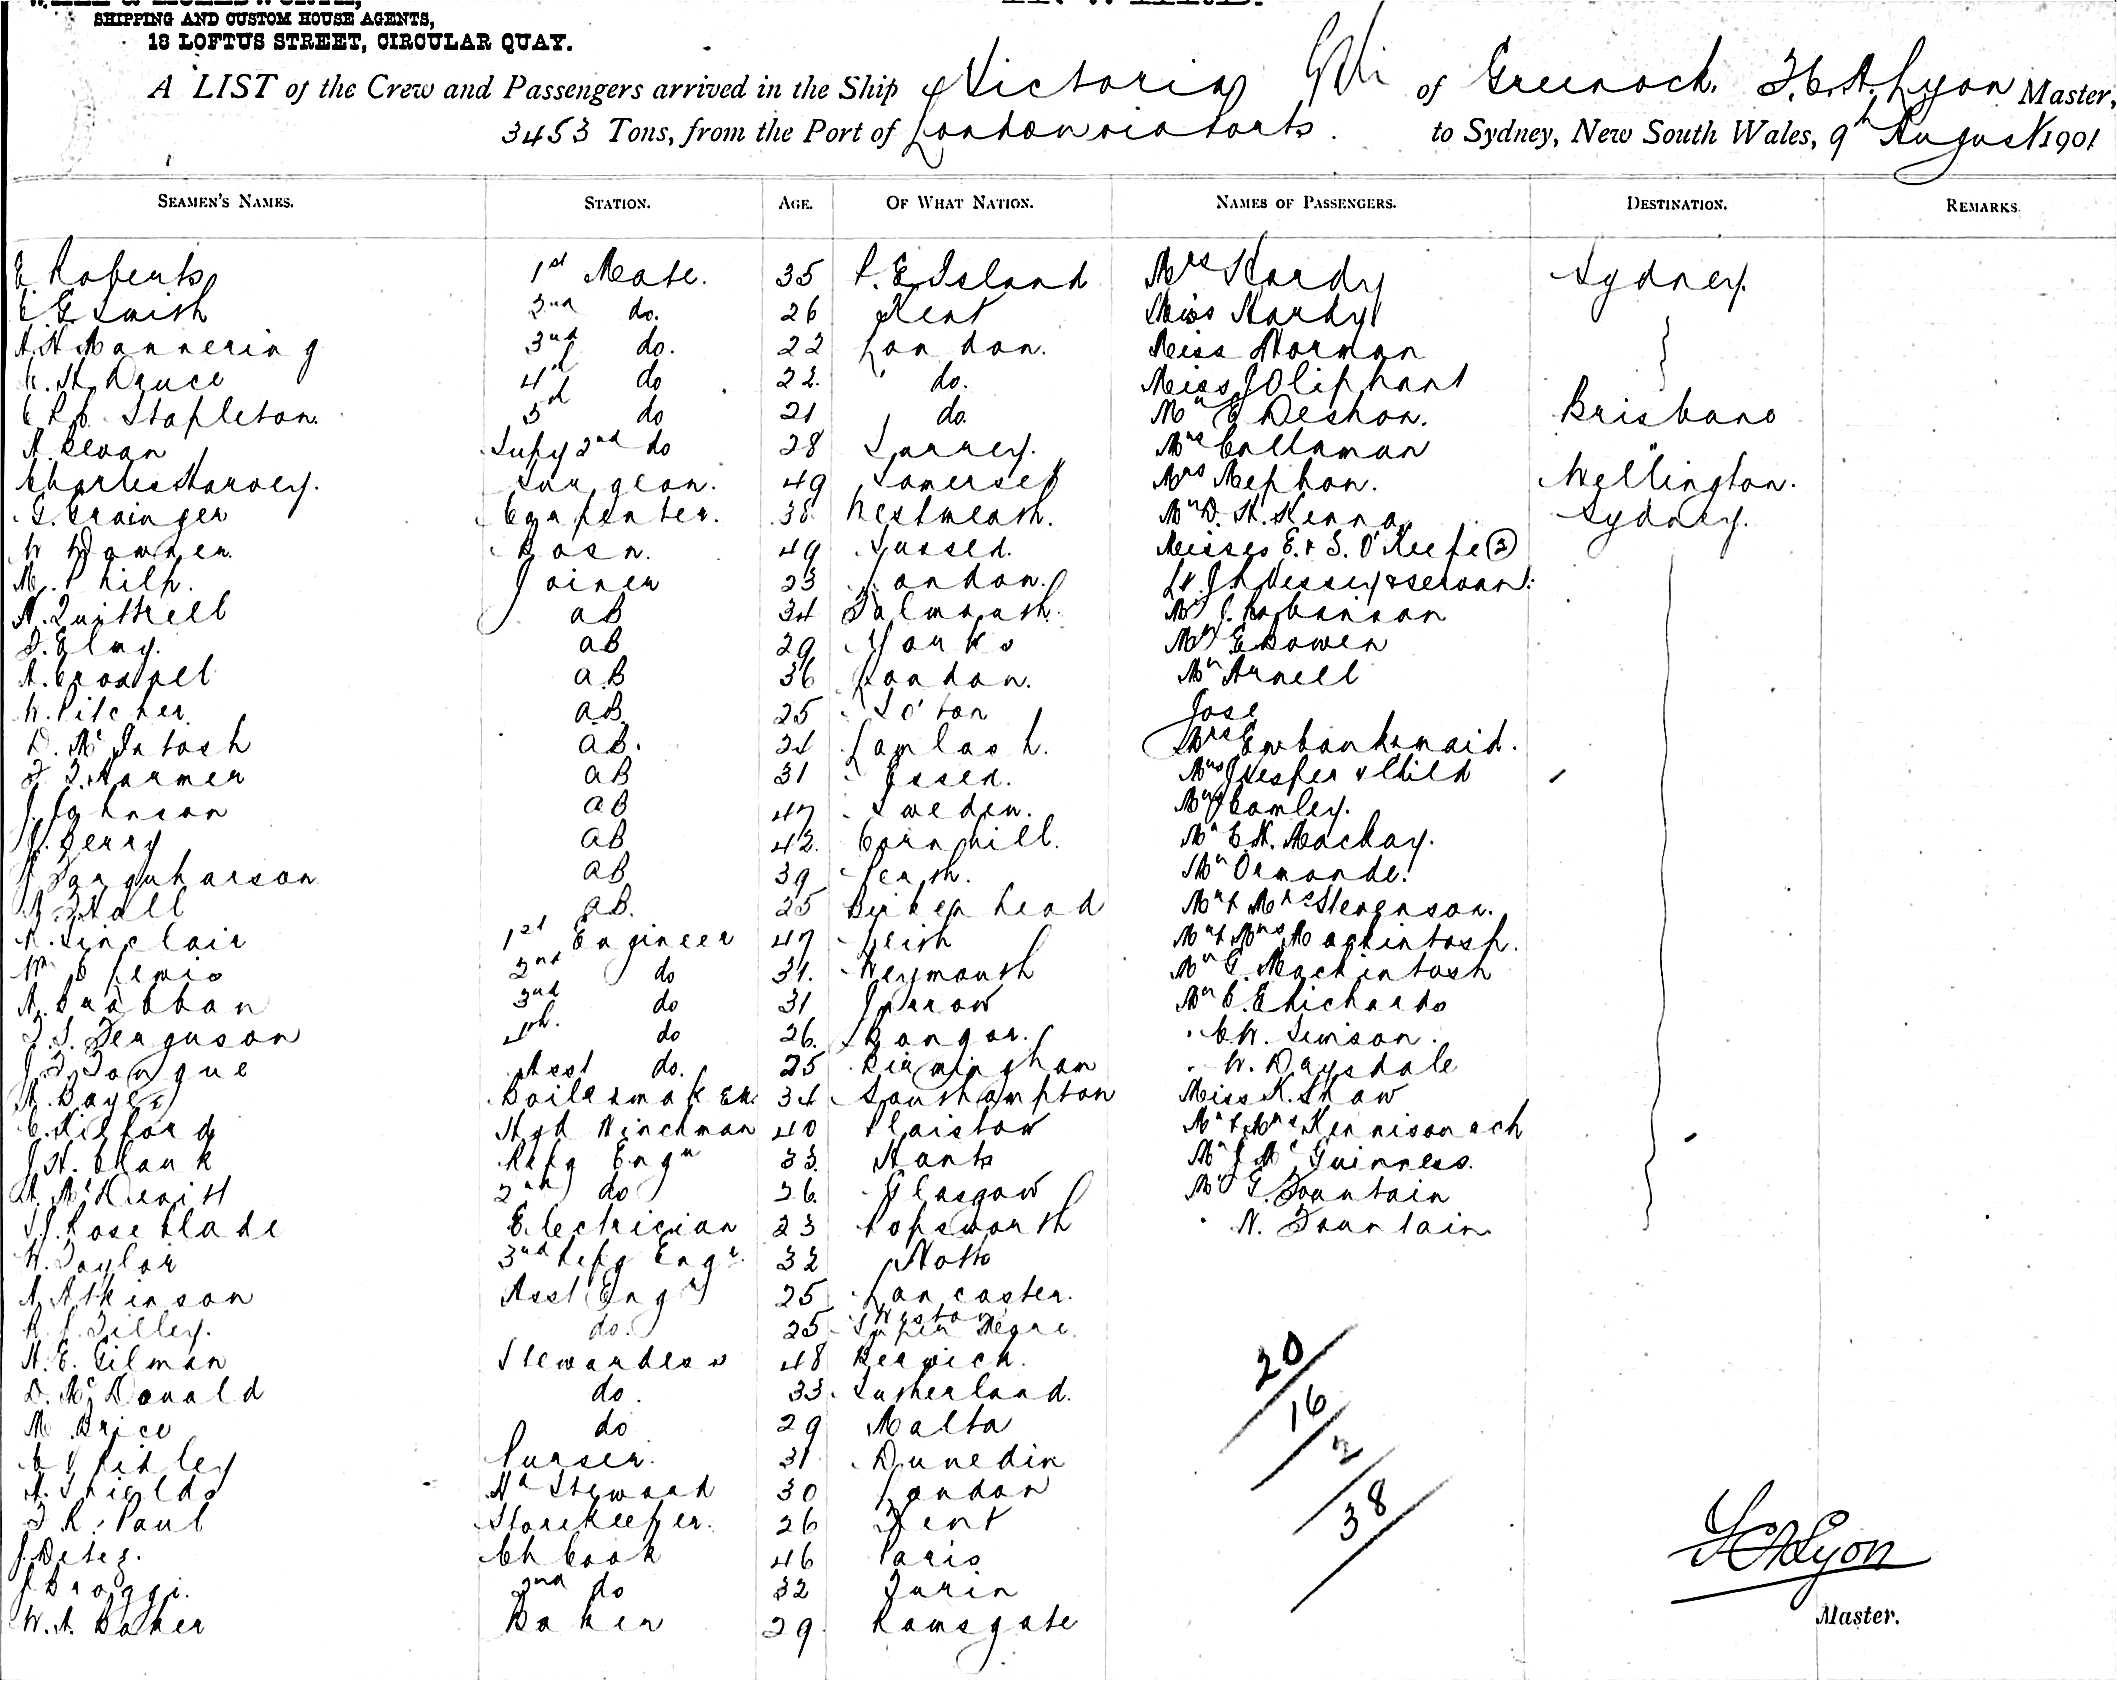 SHIPPING AND CUSTOM HOUSE AGENTS,
18 LOFTUS STREET, CIRCULAR QUAY.
A LIST of the Crew and Passengers arrived in the Ship Victoria of Greenock, Lyon Master,
3453 Tons, from the Port of London via ports. to Sydney, New South Wales, 9th August 1901
SEAMEN'S NAMES. STATION. AGE. OF WHAT NATION. NAMES OF PASSENGERS. DESTINATION. REMARKS.
E. Roberts 1st Mate. 35 P. E. Island Mrs Hardy Sydney.
C G Smith 2nd do. 26 Kent Miss Hardy
A. H Mannering 3rd do. 22 London. Miss Norman
W. St Druce 4th do 22. do. Miss J Oliphant
C R B Stapleton. 5th do 21 do. Mr E Deshon. Brisbane
A. Bevan Supy 2nd do 28 Surrey. Mrs Callaman "
Charles Harvey. Surgeon. 49 Somerset Mrs Mephan. Wellington.
G. Grainger Carpenter. 38 Westmeath. Mr D. H. Kenna Sydney.
Bosn. 49 Sussex. Misses E. & S. O'Keefe (2)
M. Philp. Joiner 23 London. Lt. J. Vessey & servant.
A. Quittrell AB 34 Falmouth. Mr J. Robinson
F. Elmy. AB 29 Yorks Mr E Bowen
A. AB 36 London. Mr Arnell
W. Pitcher. AB. 25 So'ton Jose
D. Mc Intosh AB. 24 Lamlash. Mrs Ewbank & maid.
F. J. Harmer AB 31 Essex. Mrs Jesper & Child
J. Johnson AB 47 Sweden. Mrs Comley.
Berry AB 42. Cornhill. Mr E. H. Mackay.
J Farquharson AB 39 Perth. Mr Ormonde.
Hall AB. 25 Birkenhead Mr & Mrs Stevenson.
R. Sinclair 1st Engineer 47 Leith Mr & Mrs Mackintosh.
Wm C Lewis 2nd do 31. Weymouth Mr G. Mackintosh
A. Brabban 3rd do 31 Jarrow Mr C. E Richards
F. S. Ferguson 4th. do 26. Bangor. " C W. Simson.
J F Tongue Asst do. 25 Birmingham " W. Daysdale
A. Bayes Boilersmaker. 34 Southampton Miss K. Shaw
C. Kilford Hyd Winchman 40 Plaistow Mr & Mrs Kennison & ch
J. H. Chank Refg Engr 33. Hants Mr J Mc Guinness.
A. McDevitt 2nd do 26. Glasgow Mr G. Fountain
S. J. Roseblade Electrician 23 Popsworth " N. Fountain
W. Taylor 3rd Refg Engr. 32 Notts
A Atkinson Asst Engr 25 Lancaster.
R. J. Tilley. do. 25 Weston Super Mare.
A. E. Gilman Stewardess 48 Berwick.
D. Mc Donald do. 33. Sutherland.
M Brice do 29 Malta
C V Pitley Purser. 31 Dunedin
A. Shields Hd Steward 30 London
F R. Paul Storekeeper. 26 Kent
J. Deleg. Ch Cook 46 Paris
J Broggi. 2nd do 32 Turin
W. A. Baker Baker 29 Ramsgate
20
16
2
38
Lyon
Master.